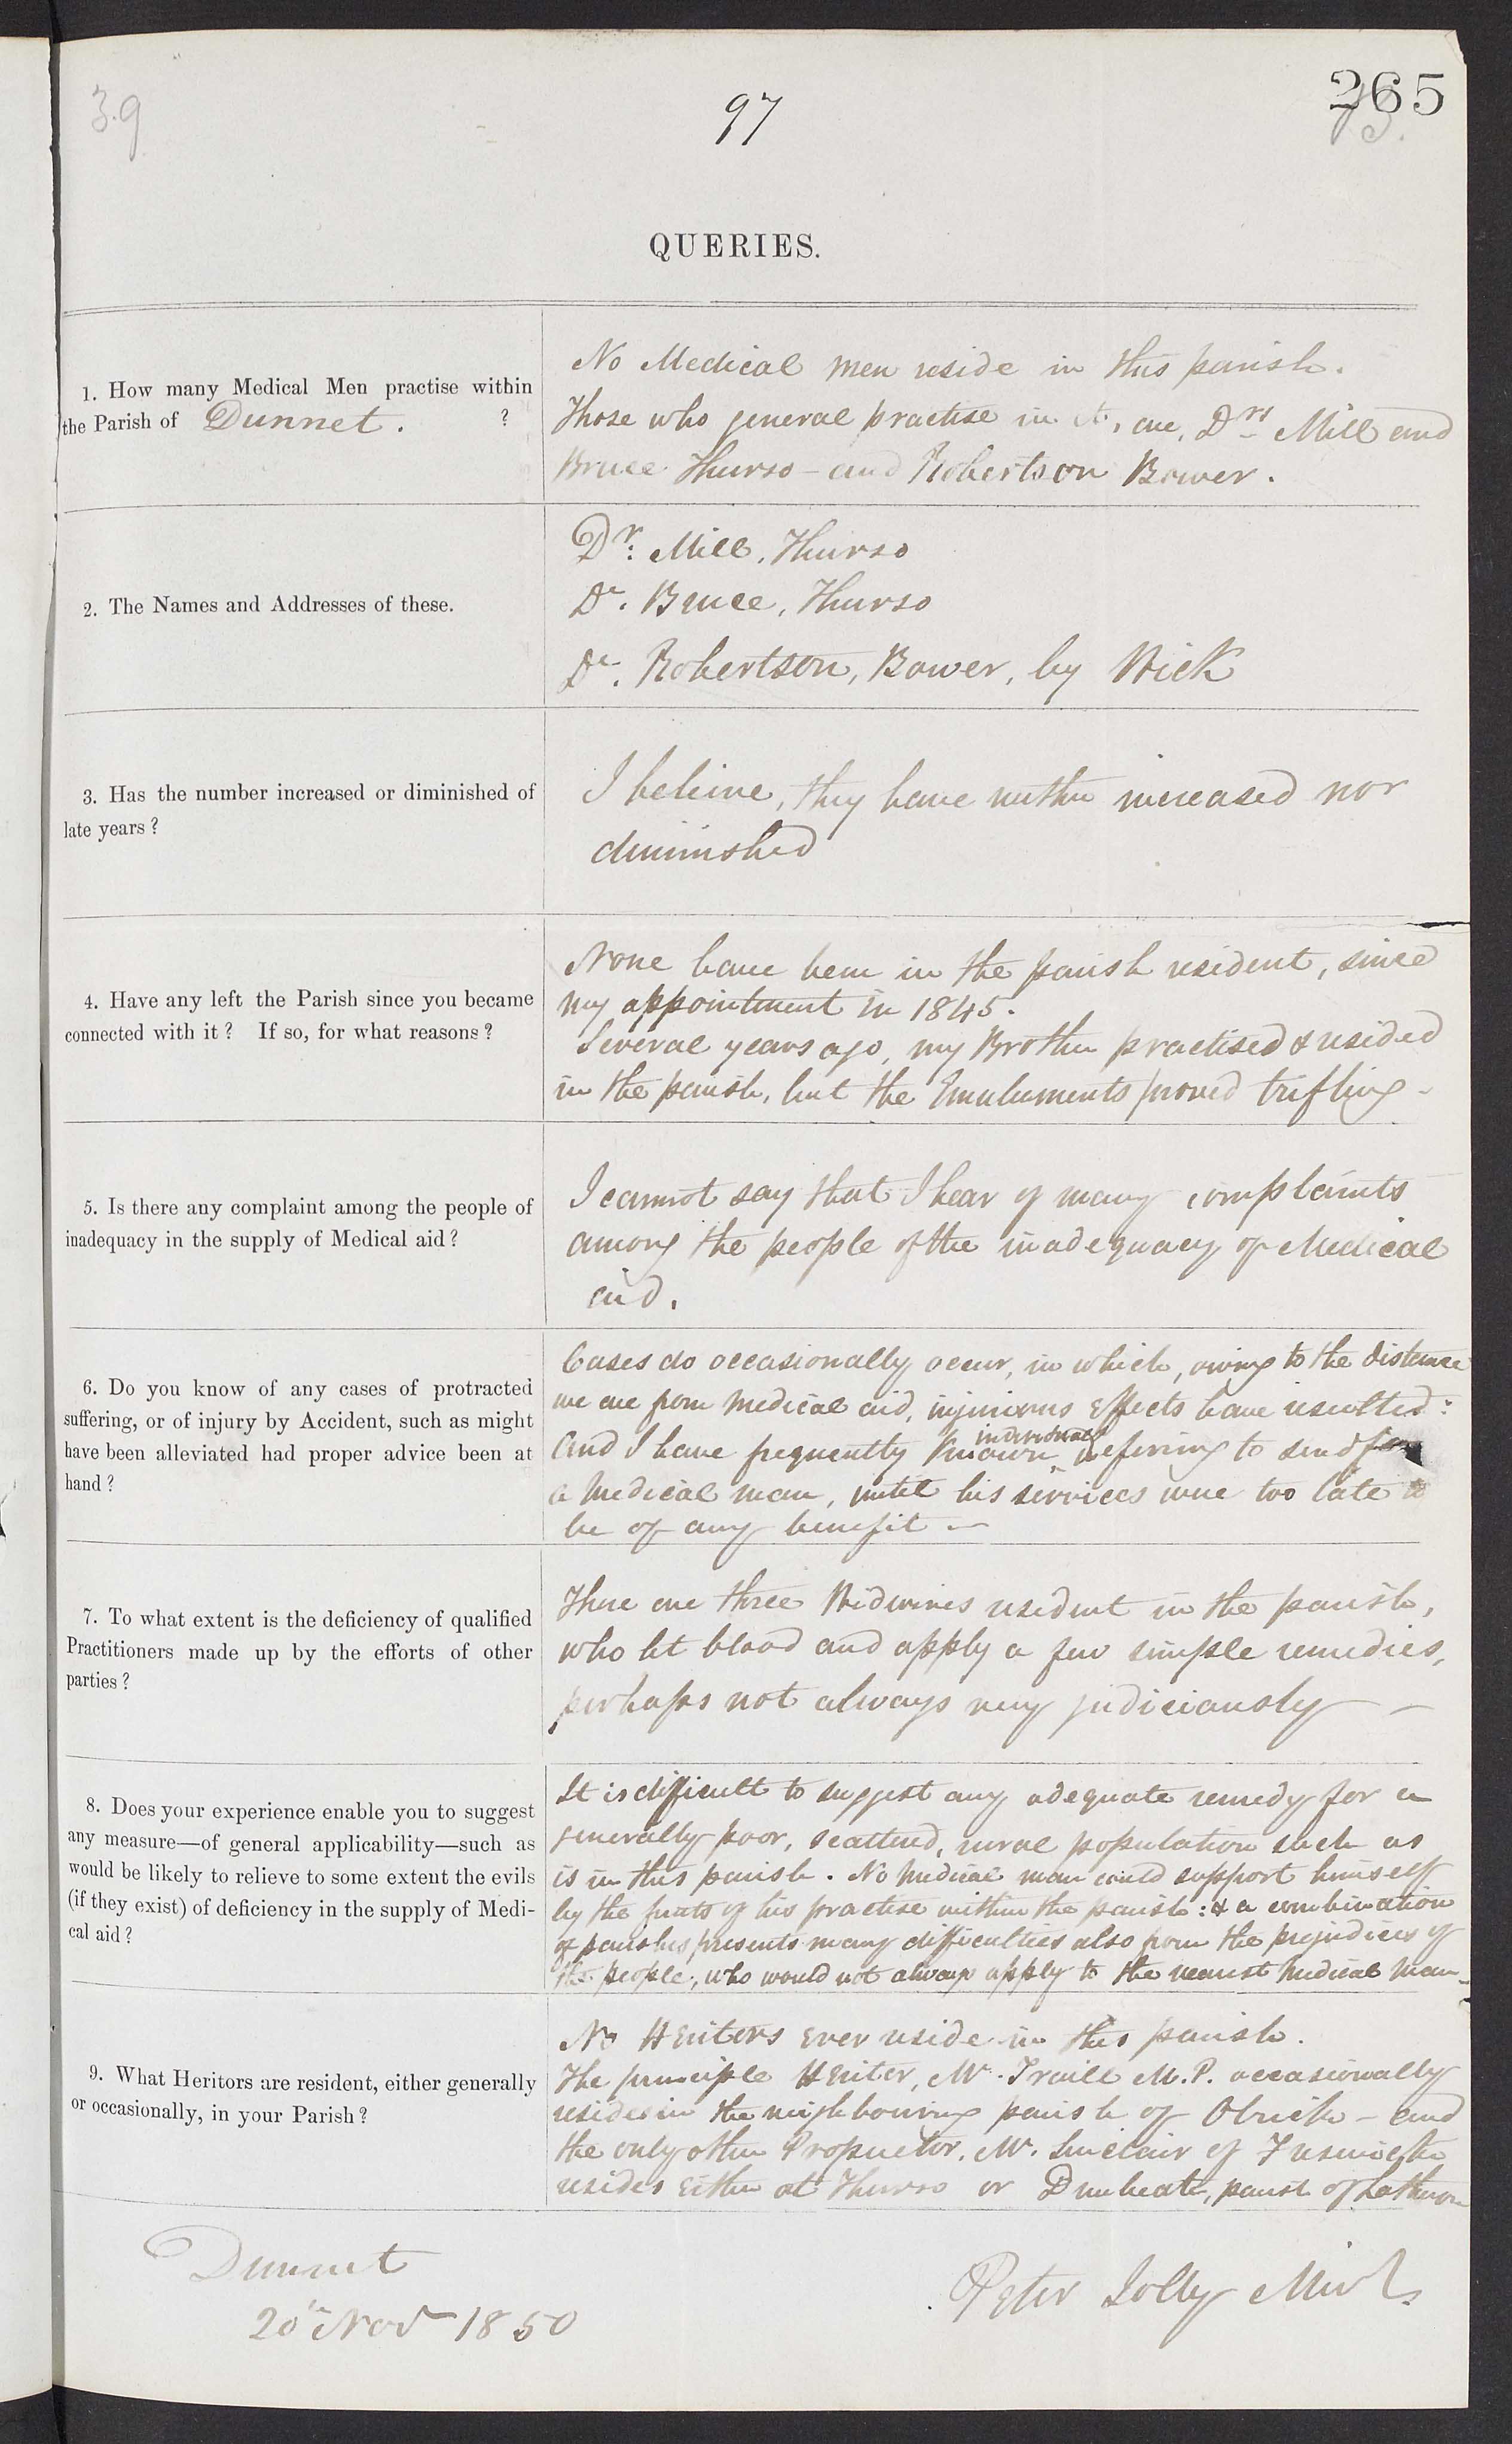 39
97
265
QUERIES.
1. How many Medical Men practise within
the Parish of Dunnet. ?
No Medical men reside in this parish.
Those who general practise in it, are, Drs Mill and
Bruce Thurso - and Robertson Bower.
2. The Names and Addresses of these.
Dr. Mill, Thurso
Dr. Bruce, Thurso
Dr. Robertson, Bower, by Wick
3. Has the number increased or diminished of
late years?
I believe, they have neither increased nor
diminished
4. Have any left the Parish since you became
connected with it? If so, for what reasons?
None have been in the parish resident, since
my appointment in 1845.
Several years ago, my Brother practised & resided
in the parish, but the Emoluments proved trifling -
5. Is there any complaint among the people of
inadequacy in the supply of Medical aid?
I cannot say that I hear of many complaints
among the people of the inadequacy of Medical
aid.
6. Do you know of any cases of protracted
suffering, or of injury by Accident, such as might
have been alleviated had proper advice been at
hand?
Cases do occasionally occur, in which, owing to the distance
we are from medical aid, injurious effects have resulted:
And I have frequently known individuals deferring to send for
a medical man, until his services were too late to
be of any benefit -
7. To what extent is the deficiency of qualified
Practitioners made up by the efforts of other
parties?
There are three Midwives resident in the parish,
who let blood and apply a few simple remedies,
perhaps not always very judiciously -
8. Does your experience enable you to suggest
any measure—of general applicability—such as
would be likely to relieve to some extent the evils
(if they exist) of deficiency in the supply of Medi-
cal aid?
It is difficult to suggest any adequate remedy for a
generally poor, scattered, rural population such as
is in this parish. No medical man could support himself
by the fruits of his practise within the parish: & a combination
of parishes presents many difficulties also from the prejudices of
the people, who would not always apply to the nearest medical man -
9. What Heritors are resident, either generally
or occasionally, in your Parish?
No Heritors ever reside in this parish.
The principle Heritor, Mr. Traill M.P. occasionally
resides in the neighbouring parish of Olrick - and
the only other Proprietor, Mr. Sinclair of Freswick
resides either at Thurso or Dunbeath, parish of Latheron
Dunnet
20th Novr 1850
Peter Jolly Minr